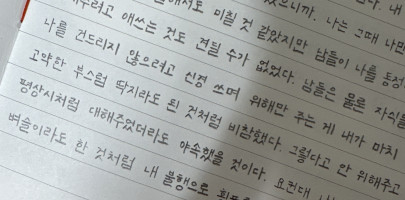 내
었으니까. 나는 그때 나만
해서도 미칠 것 같았지만 남들이 나를 동정
애쓰는 것도 견딜 수가 없었다. 남들은 물론 자식들
나를 건드리지 않으려고 신경 쓰며 위해만 주는 게 내가 마치
고약한 부스럼 딱지라도 된 것처럼 비참했다. 그렇다고 안 위해주고
평상시처럼 대해주었더라도 야속했을 것이다. 요컨대 나
벼슬이라도 한 것처럼 내 불행으로